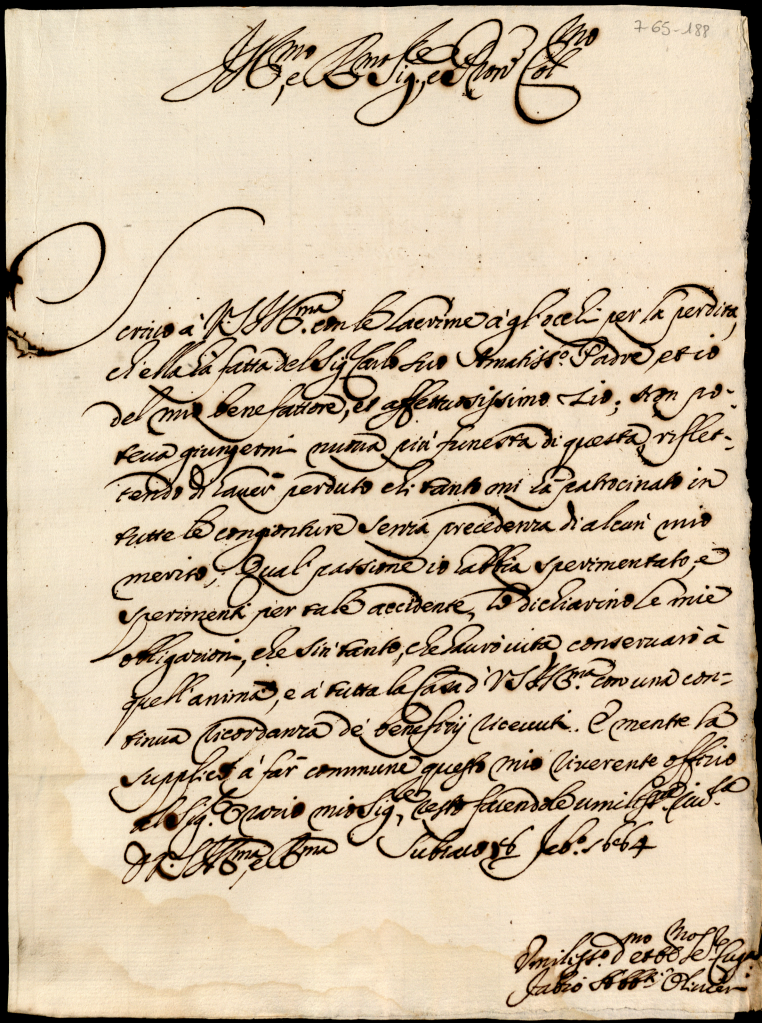 7-65-188
Ill.mo, e R.mo Sig.re, e Pron Col.mo
Scrivo à V.S. Ill.ma con le lacrime à gl'occhi per la perdita,
ch'ella hà fatta del Sig. Carlo suo Amatiss.o Padre, et io
del mio benefattore, et affettuosissimo Zio; Non po-
teva giungermi nuova più funesta di questa, riflet-
tendo di haver perduto chi tanto mi hà patrocinato in
tutte le congionture senza precedenza di alcun mio
merito, Qual passione io habbia sperimentato, e
sperimenti per tale accidente, lo dichiarino le mie
obligazioni, che sin tanto, che haurò vita conservarò à
quell'anima, e à tutta la Casa di V.S. Ill.ma con una con-
tinua ricordanza de' benefizij ricevuti. E mentre la
supplico à far commune questo mio riverente offizio
al Sig.re mio Sig.re, resto facendole umiliss.a riv.za
D V.S. Ill.ma, e R.ma Subiaco 16 Feb.o 1664
Umiliss.o D.mo et Obl.mo Se.re Cug.
Fabio Olivieri